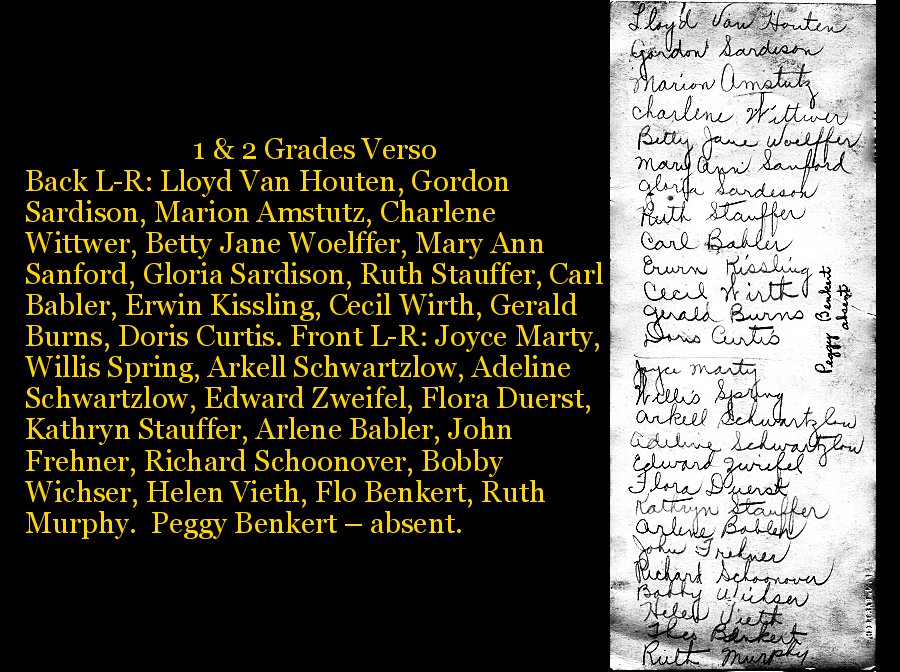 1 & 2 Grades Verso
Back L-R: Lloyd Van Houten, Gordon
Sardison, Marion Amstutz, Charlene
Wittwer, Betty Jane Woelffer, Mary Ann
Sanford, Gloria Sardison, Ruth Stauffer, Carl
Babler, Erwin Kissling, Cecil Wirth, Gerald
Burns, Doris Curtis. Front L-R: Joyce Marty,
Willis Spring, Arkell Schwartzlow, Adeline
Schwartzlow, Edward Zweifel, Flora Duerst,
Kathryn Stauffer, Arlene Babler, John
Frehner, Richard Schoonover, Bobby
Wichser, Helen Vieth, Flo Benkert, Ruth
Murphy.  Peggy Benkert – absent.
Lloyd Van Houten
Gordon Sardison
Marion Amstutz
Charlene Wittwer
Betty Jane Woelffer
Mary Ann Sanford
Gloria Sardeson
Ruth Stauffer
Carl Babler
Erwin Kissling
Cecil Wirth
Gerald Burns
Doris Curtis
Peggy Benkert
absent
Joyce Marty
Willis Spring
Arkell Schwartzlow
Adeline Schwartzlow
Edward Zweifel
Flora Duerst
Kathryn Stauffer
Arlene Babler
John Frehner
Richard Schoonover
Bobby Wichser
Helen Vieth
Benkert
Ruth Murphy